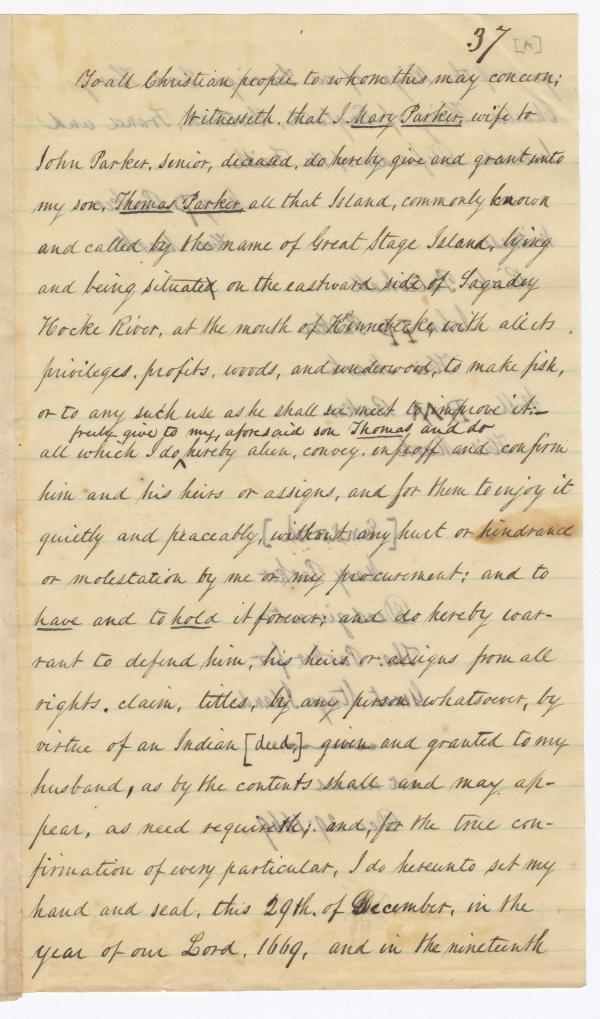 37 [K]
To all Christian people to whom this may concern;
Witnesseth, that I Mary Parker, wife to
John Parker, senior, deceased, do hereby give and grant unto
my son, Thomas Parker, all that Island, commonly known
and called by the name of Great Stage Island, lying
and being situated on the eastward side of Sagady
Hocke River, at the mouth of Kinnebecke, with all its
privileges, profits, woods, and underwood, to make fish,
or to any such use as he shall see meet to improve it:—
freely give to my, aforesaid son Thomas, and do
all which I do, hereby alien, convey, enfeoff and confirm
him and his heirs or assigns, and for them to enjoy it
quietly and peaceably, without any hurt or hindrance
or molestation by me or my procurement; and to
have and to hold it forever; and do hereby war-
rant to defend him, his heirs or assigns from all
rights, claim, titles, by any person whatsoever, by
virtue of an Indian [deed,] given and granted to my
husband, as by the contents shall and may ap-
pear, as need requireth; and, for the true con-
firmation of every particular, I do hereunto set my
hand and seal, this 29th. of December, in the
year of our Lord, 1669, and in the nineteenth